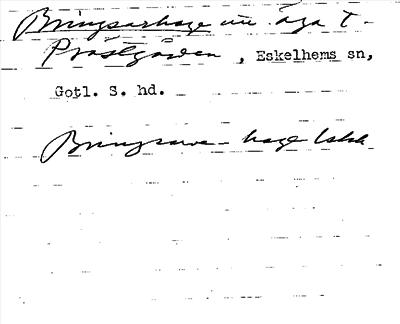 Bringsarhage nu äga t.
Prästgården, Eskelhems sn,
Gotl. S. hd.
Bringsarve- hage